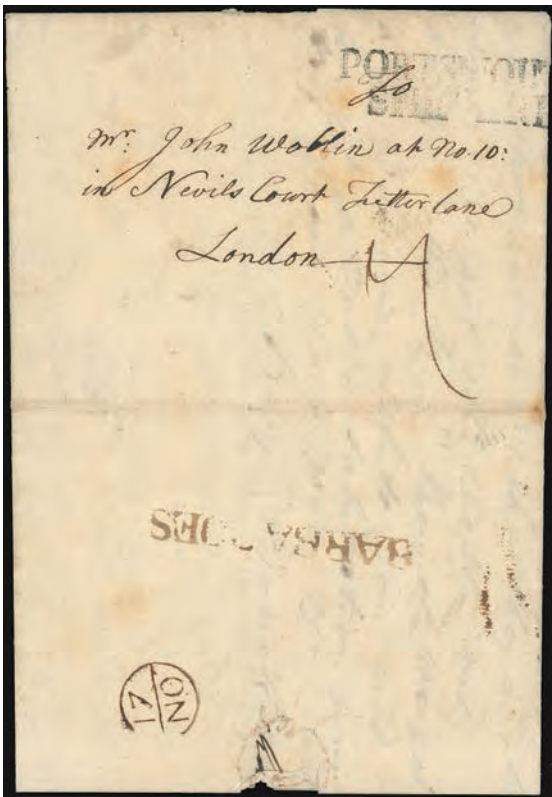 PORTSMOU
SHIP LRE
To
Mr. John Wollin at No. 10:
in Nevils Court Fetter lane
London
BARBADOES
NO
17